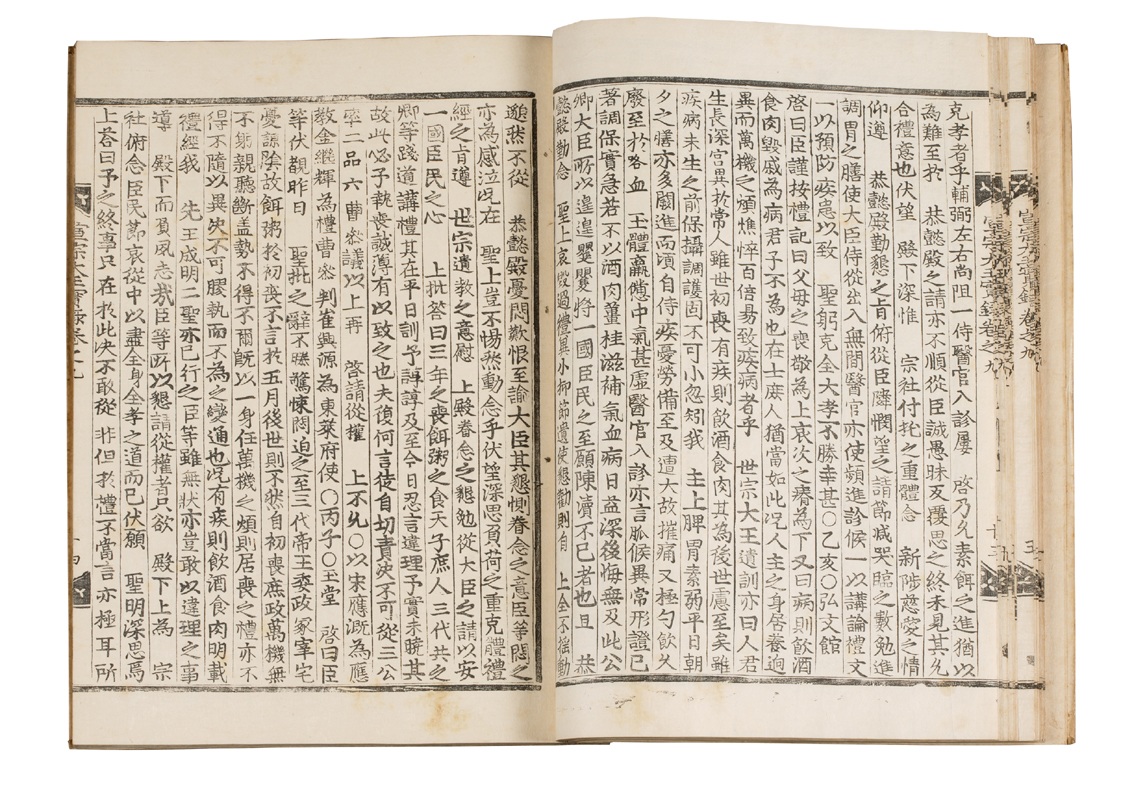 宣宗大王實錄卷之九
克孝者乎輔弼左右尚阻一侍醫官入診屢　啓乃允素餌之進猶以
為難至於　恭懿殿之請亦不順從臣誠愚昧反覆思之終未見其允
合禮意也伏望　殿下深惟　宗社付托之重體念　新陟慈愛之情
仰遵　恭懿殿勤懇之旨俯從臣隣憫望之請節減哭臨之數勉進
調胃之膳使大臣侍從出入無間醫官亦使頻進診候一以講論禮文
一以預防疾患以致　聖躬克全大孝不勝幸甚○乙亥○弘文館
啓曰臣謹按禮記曰父母之喪敬為上哀次之瘠為下又曰病則飲酒
食肉毀戚為病君子不為也在士庶人猶當如此况人主之身居養逈
異而萬機之煩憔悴百倍易致疾病者乎　世宗大王遺訓亦曰人君
生長深宮異於常人雖世初喪有疾則飲酒食肉其為後世慮至矣雖
疾病未生之前保攝調護固不可小忽矧我　主上脾胃素弱平日朝
夕之膳亦多闕進而頃自侍疾憂勞備至及遭大故摧痛又極勺飲久
廢至於咯血　玉體羸憊中氣甚虛醫官入診亦言脈候異常形證已
著調保實急若不以酒肉薑桂滋補氣血病日益深後悔無及此公
卿大臣所以遑遑瞿瞿將一國臣民之至願陳瀆不已者也且　恭
懿殿勤念　聖上哀毀過禮異小抑節遣使懇勸則自　上全不搖動
邈然不從　恭懿殿憂悶歎恨至諭大臣其懇惻眷念之意臣等聞之
亦為感泣况在　聖上豈不惕然動念乎伏望深思負荷之重克體禮
經之旨遵　世宗遺教之意慰　上殿眷念之懇勉從大臣之請以安
一國臣民之心　上批答曰三年之喪飦粥之食天子庶人三代共之
卿等踐道講禮其在平日訓予諄諄及至今日忍言違理予實未曉其
故此必予執喪誠薄有以致之也夫復何言徒自切責决不可從三公
率二品六曹參議以上再　啓請從權　上不允○以宋應溉為應
教金繼輝為禮曹參判崔興源為東萊府使○丙子○玉堂　啓曰臣
等伏覩昨日　聖批之辭不勝驚悚悶迫之至三代帝王委政冢宰宅
憂諒陰故飦粥於初喪不言於五月後世則不然自初喪庶政萬機無
不躬親聽斷盖勢不得不爾旣以一身任萬機之煩則居喪之禮亦不
得不隨以異决不可膠執而不為之變通也况有疾則飲酒食肉明載
禮經我　先王成明二聖亦已行之臣等雖無狀亦豈敢以違理之事
導　殿下而負夙志哉臣等所以懇請從權者只欲　殿下上為　宗
社俯念臣民節哀從中以盡全身全孝之道而已伏願　聖明深思焉
上答曰予之終事只在於此决不敢從非但於禮予當言亦極耳所
宣宗大王實錄卷之九　十四